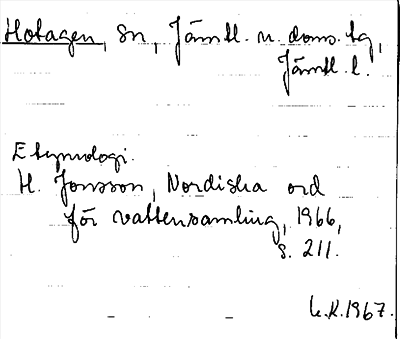 Hotagen, sn, Jämtl. n. doms. tg,
Jämtl. l.
Etymologi.
H. Jonsson, Nordiska ord
för vattensamling, 1966,
s. 211.
K.1967.